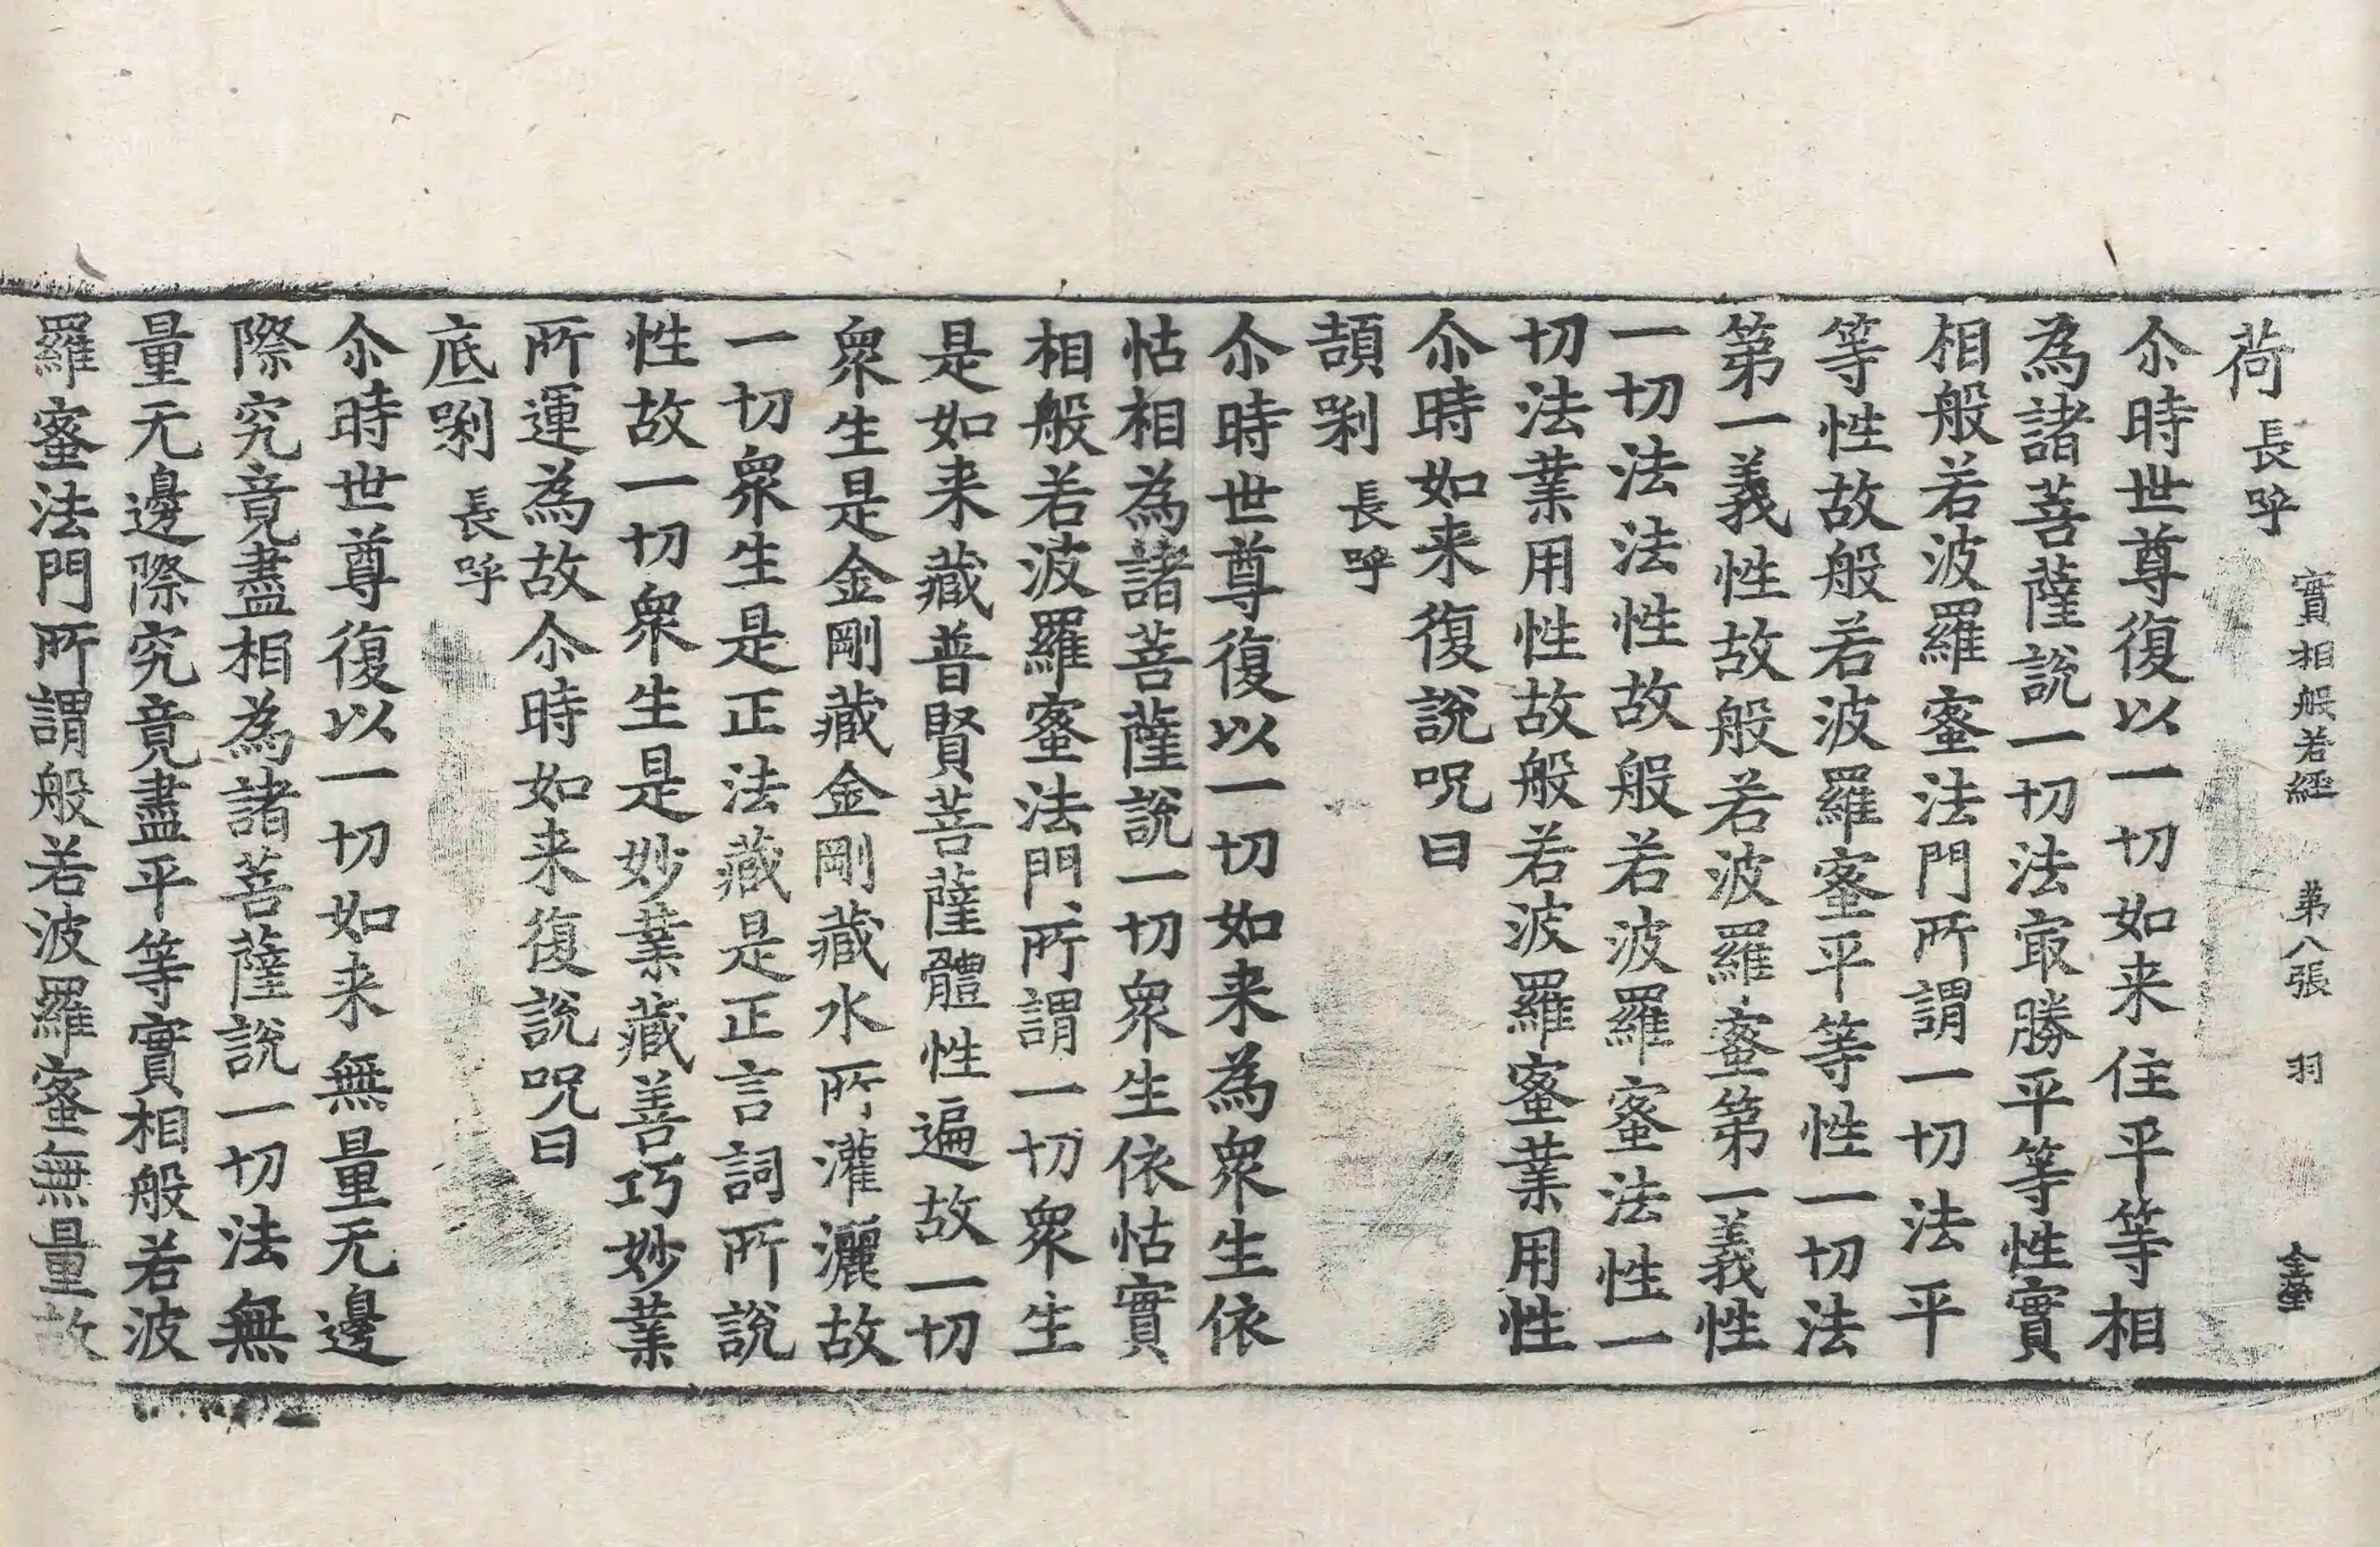 實相般若經 第八張 羽
荷長呼
尒時世尊復以一切如来住平等相
為諸菩薩說一切法㝡勝平等性實
相般若波羅蜜法門所謂一切法平
等性故般若波羅蜜平等性一切法
第一義性故般若波羅蜜第一義性
一切法法性故般若波羅蜜法性一
切法業用性故般若波羅蜜業用性
尒時如来復說呪曰
頡唎長呼
尒時世尊復以一切如来為衆生依
怙相為諸菩薩說一切衆生依怙實
相般若波羅蜜法門所謂一切衆生
是如来藏普賢菩薩體性遍故一切
衆生是金剛藏金剛藏水所灌灑故
一切衆生是正法藏是正言詞所說
性故一切衆生是妙業藏善巧妙業
所運為故尒時如来復說呪曰
底唎長呼
尒時世尊復以一切如来無量无邊
際究竟盡相為諸菩薩說一切法無
量无邊際究竟盡平等實相般若波
羅蜜法門所謂般若波羅蜜無量故